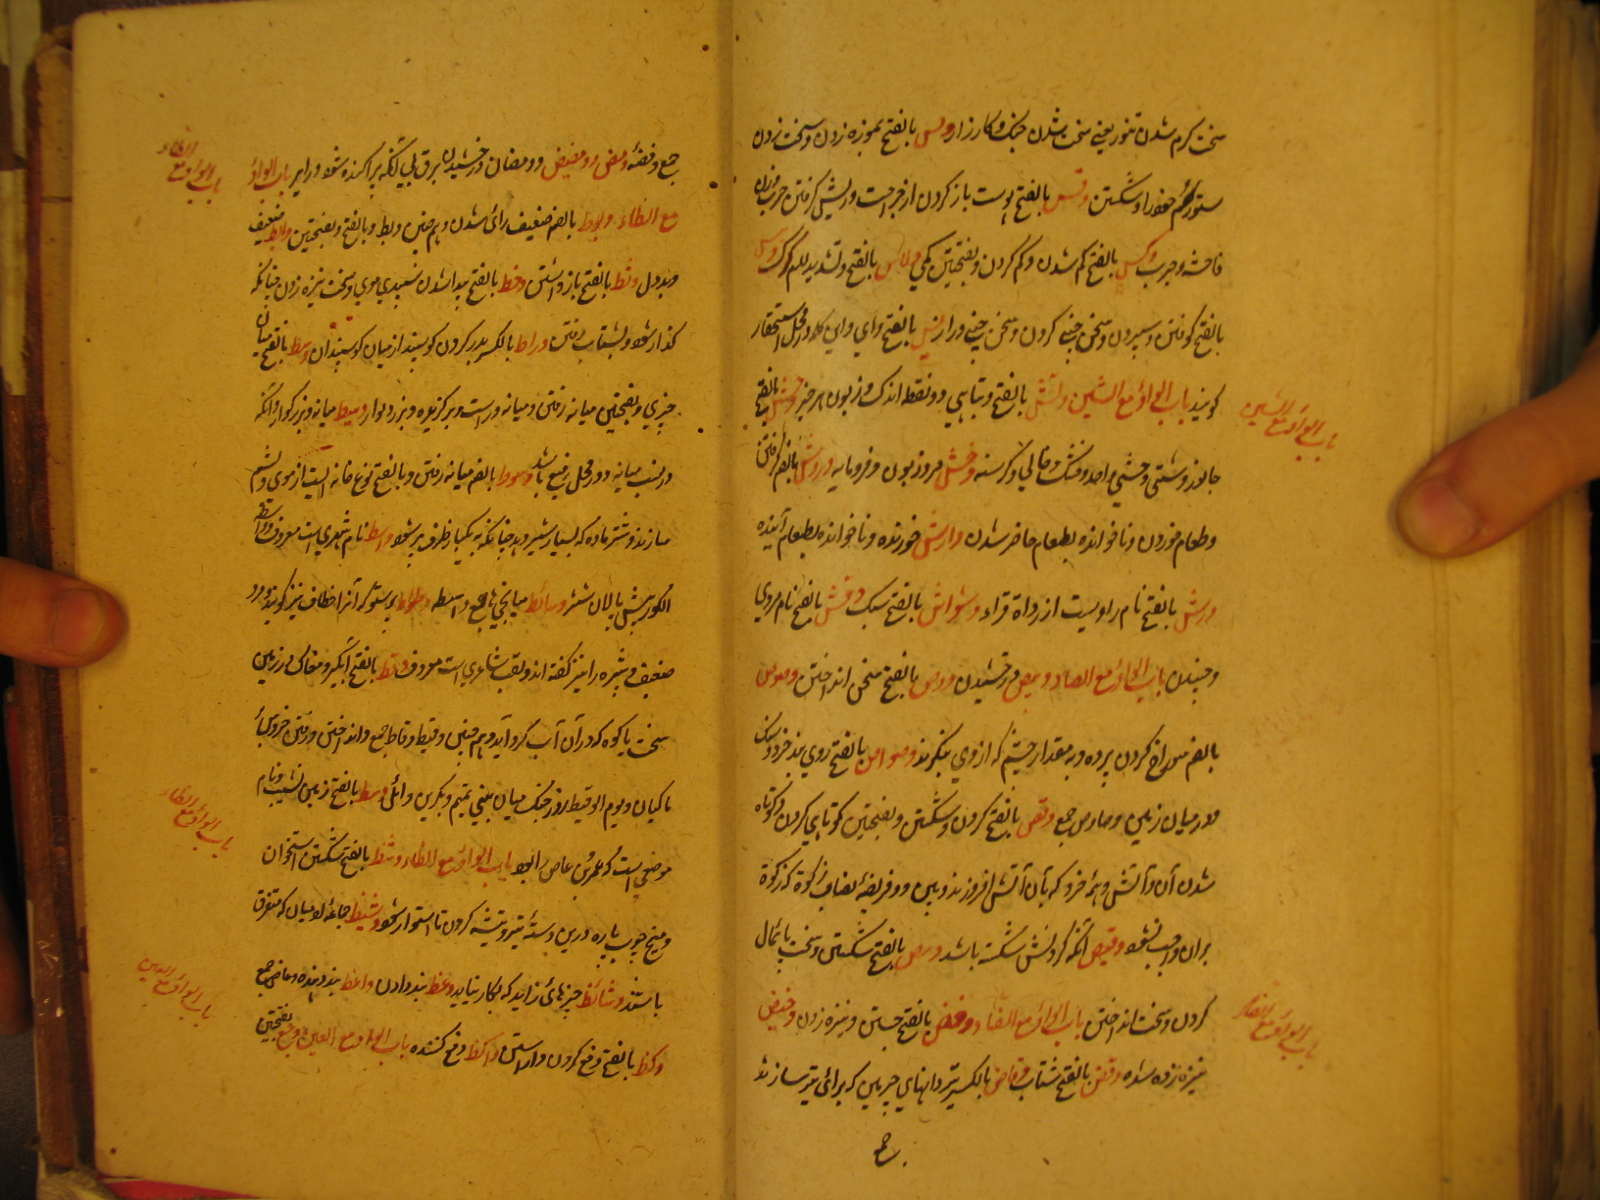 سخت گرم شدن تنور یعنی سخت شدن جنک و کارزار وطس بالفتح بموزه زدن و سخت زدن
ستور سم خود را و شکستن وقس بالفتح پوست باز کردن از جراحت و ریش گرفتن حرب
فاحشه و جرب وکس بالفتح کم شدن و کم کردن و بفتحتین کمی ولاس بالفتح و تشدید لام گرگ
بالفتح کوفتن و سپردن و سخن چینی کردن و سخن چینی و راز ویس بالفتح وای و این کلمه در محل استحقار
گویند باب الواو مع الشین وتش بالفتح و تباهی و دو نقطه اندک و زبون هر چیز وحش بالفتح
جانور دشتی وحشی واحد و خشک و خالی و گرسنه وخش مرد زبون و فرومایه وروش بالضم رفتن
و طعام خوردن و ناخوانده بطعام حاضر شدن وارش خورنده و ناخوانده بطعام آینده
ورش بالفتح نام راویست از رواة قراء وشواش بالفتح سبک وقش بالفتح نام مردی
و جنبدن باب الواو مع الصاد وبیص درخشیدن وبص بالفتح سخن انداختن وصوص
بالضم سوراخ کردن پرده و به مقدار چشم که از وی بنگرند وصواص بالفتح روی بند خرد و سنک
در میان زمین وصاوص جمع وقص بالفتح کردن و شکستن و بفتحتین کوتاهی کردن و کوتاه
شدن آن و آتش و هیزم خرد که بآن آتش افروزند و بین دو فریضه نصاب زکوة که زکوة
بران واجب نشود وقیص آنکه گردنش شکسته باشد وهص بالفتح شکستن و سخت پایمال
کردن و سخت انداختن باب الواو مع الضاد وخض بالفتح جستن و نیزه زدن وخیض
نیزه زده شده وفض بالفتح شتاب وفاض بالکسر دانهای چرمین که برای تیر سازند
باب الواو مع الشین
باب الواو مع الضاد
جمع وفضه ومض و ومیض و ومضان درخشیدن برق بی آنکه پراکنده شود در ابر باب الواو
مع الطاء وبوط بالضم ضعیف رای شدن و هم چنین وبط و بالفتح و بفتحتین وابط ضعیف
و بددل وثط بالفتح باز داشتن وخط بالفتح پیدا شدن سپیدی موی و سخت نیزه زدن چنانکه
گذار شود و بشتاب رفتن وراط بالکسر بدر کردن گوسپند از میان گوسپندان وسط بالفتح میان
چیزی و بفتحتین میانه رفتن و میانه و راست و برگزیده و بزرگوار وسیط میانه و بزرگوار و آنکه
در نسب میانه و در محل رفیع باشد وسوط بالضم میانه رفتن و بالفتح نوع خانه ایست از موی و پشم
سازند و شتر ماده که بسیار شیر دهد چنانکه به یکبار ظرف پر شود واسط نام شهریست معروف و واسطه
الکور پیش پالان شتر وسائط میانجیها جمع واسطه وطواط پرستو که آنرا خطاف نیز گویند و مرد
ضعیف و شپره را نیز گفته اند و لقب شاعری است معروف وقط بالفتح آبگیر و مغاکی در زمین
سخت یا کوه که در آن آب گرد آید و هم چنین وقیط وقاط جمع و انداختن و رفتن خروس با
ماکیان و یوم الوقیط روز جنک میان بنی تمیم و بکر بن وائل وهط بالفتح زمین نشیب و نام
موضعی است که عمرو بن عاص را بود باب الواو مع الظاء وشظ بالفتح شکستن استخوان
و میخ چوب پاره در بن دسته تبر و تیشه کردن تا استوار شود وشیظ جماعة لومیان که متفرق
باشند وشائظ چیزهای زاید که بکار نیاید وعظ پند دادن واعظ پند دهنده وعاظ جمع
وکظ بالفتح دفع کردن و راستی واکظ دفع کننده باب الواو مع العین وجع بفتحتین
باب الواو مع الطاء
باب الواو مع الظاء
باب الواو مع العین